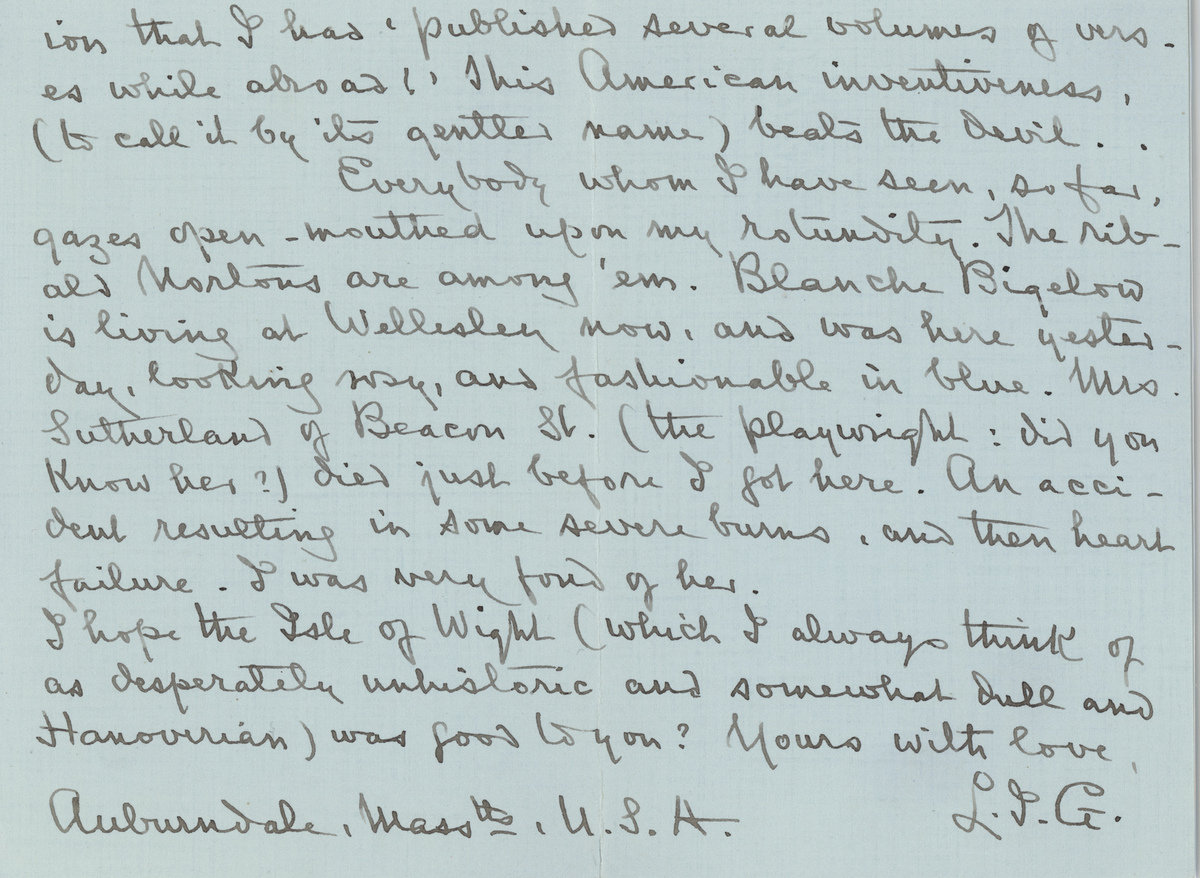 ion that I had 'published several volumes of vers-
es while abroad!' This American inventiveness,
(to call it by its gentler name) beats the devil. . .
Everybody whom I have seen, so far,
gazes open-mouthed upon my rotundity. The rib-
ald Nortons are among 'em. Blanche Bigelow
is living at Wellesley now, and was here yester-
day, looking rosy, and fashionable in blue. Mrs.
Sutherland of Beacon St. (the playwright: did you
know her?) died just before I got here. An acci-
dent resulting in some severe burns, and then heart
failure. I was very fond of her.
I hope the Isle of Wight (which I always think of
as desperately unhistoric and somewhat dull and
Hanoverian) was good to you? Yours with love,
L.I.G.
Auburndale, Masstts, U.S.A.